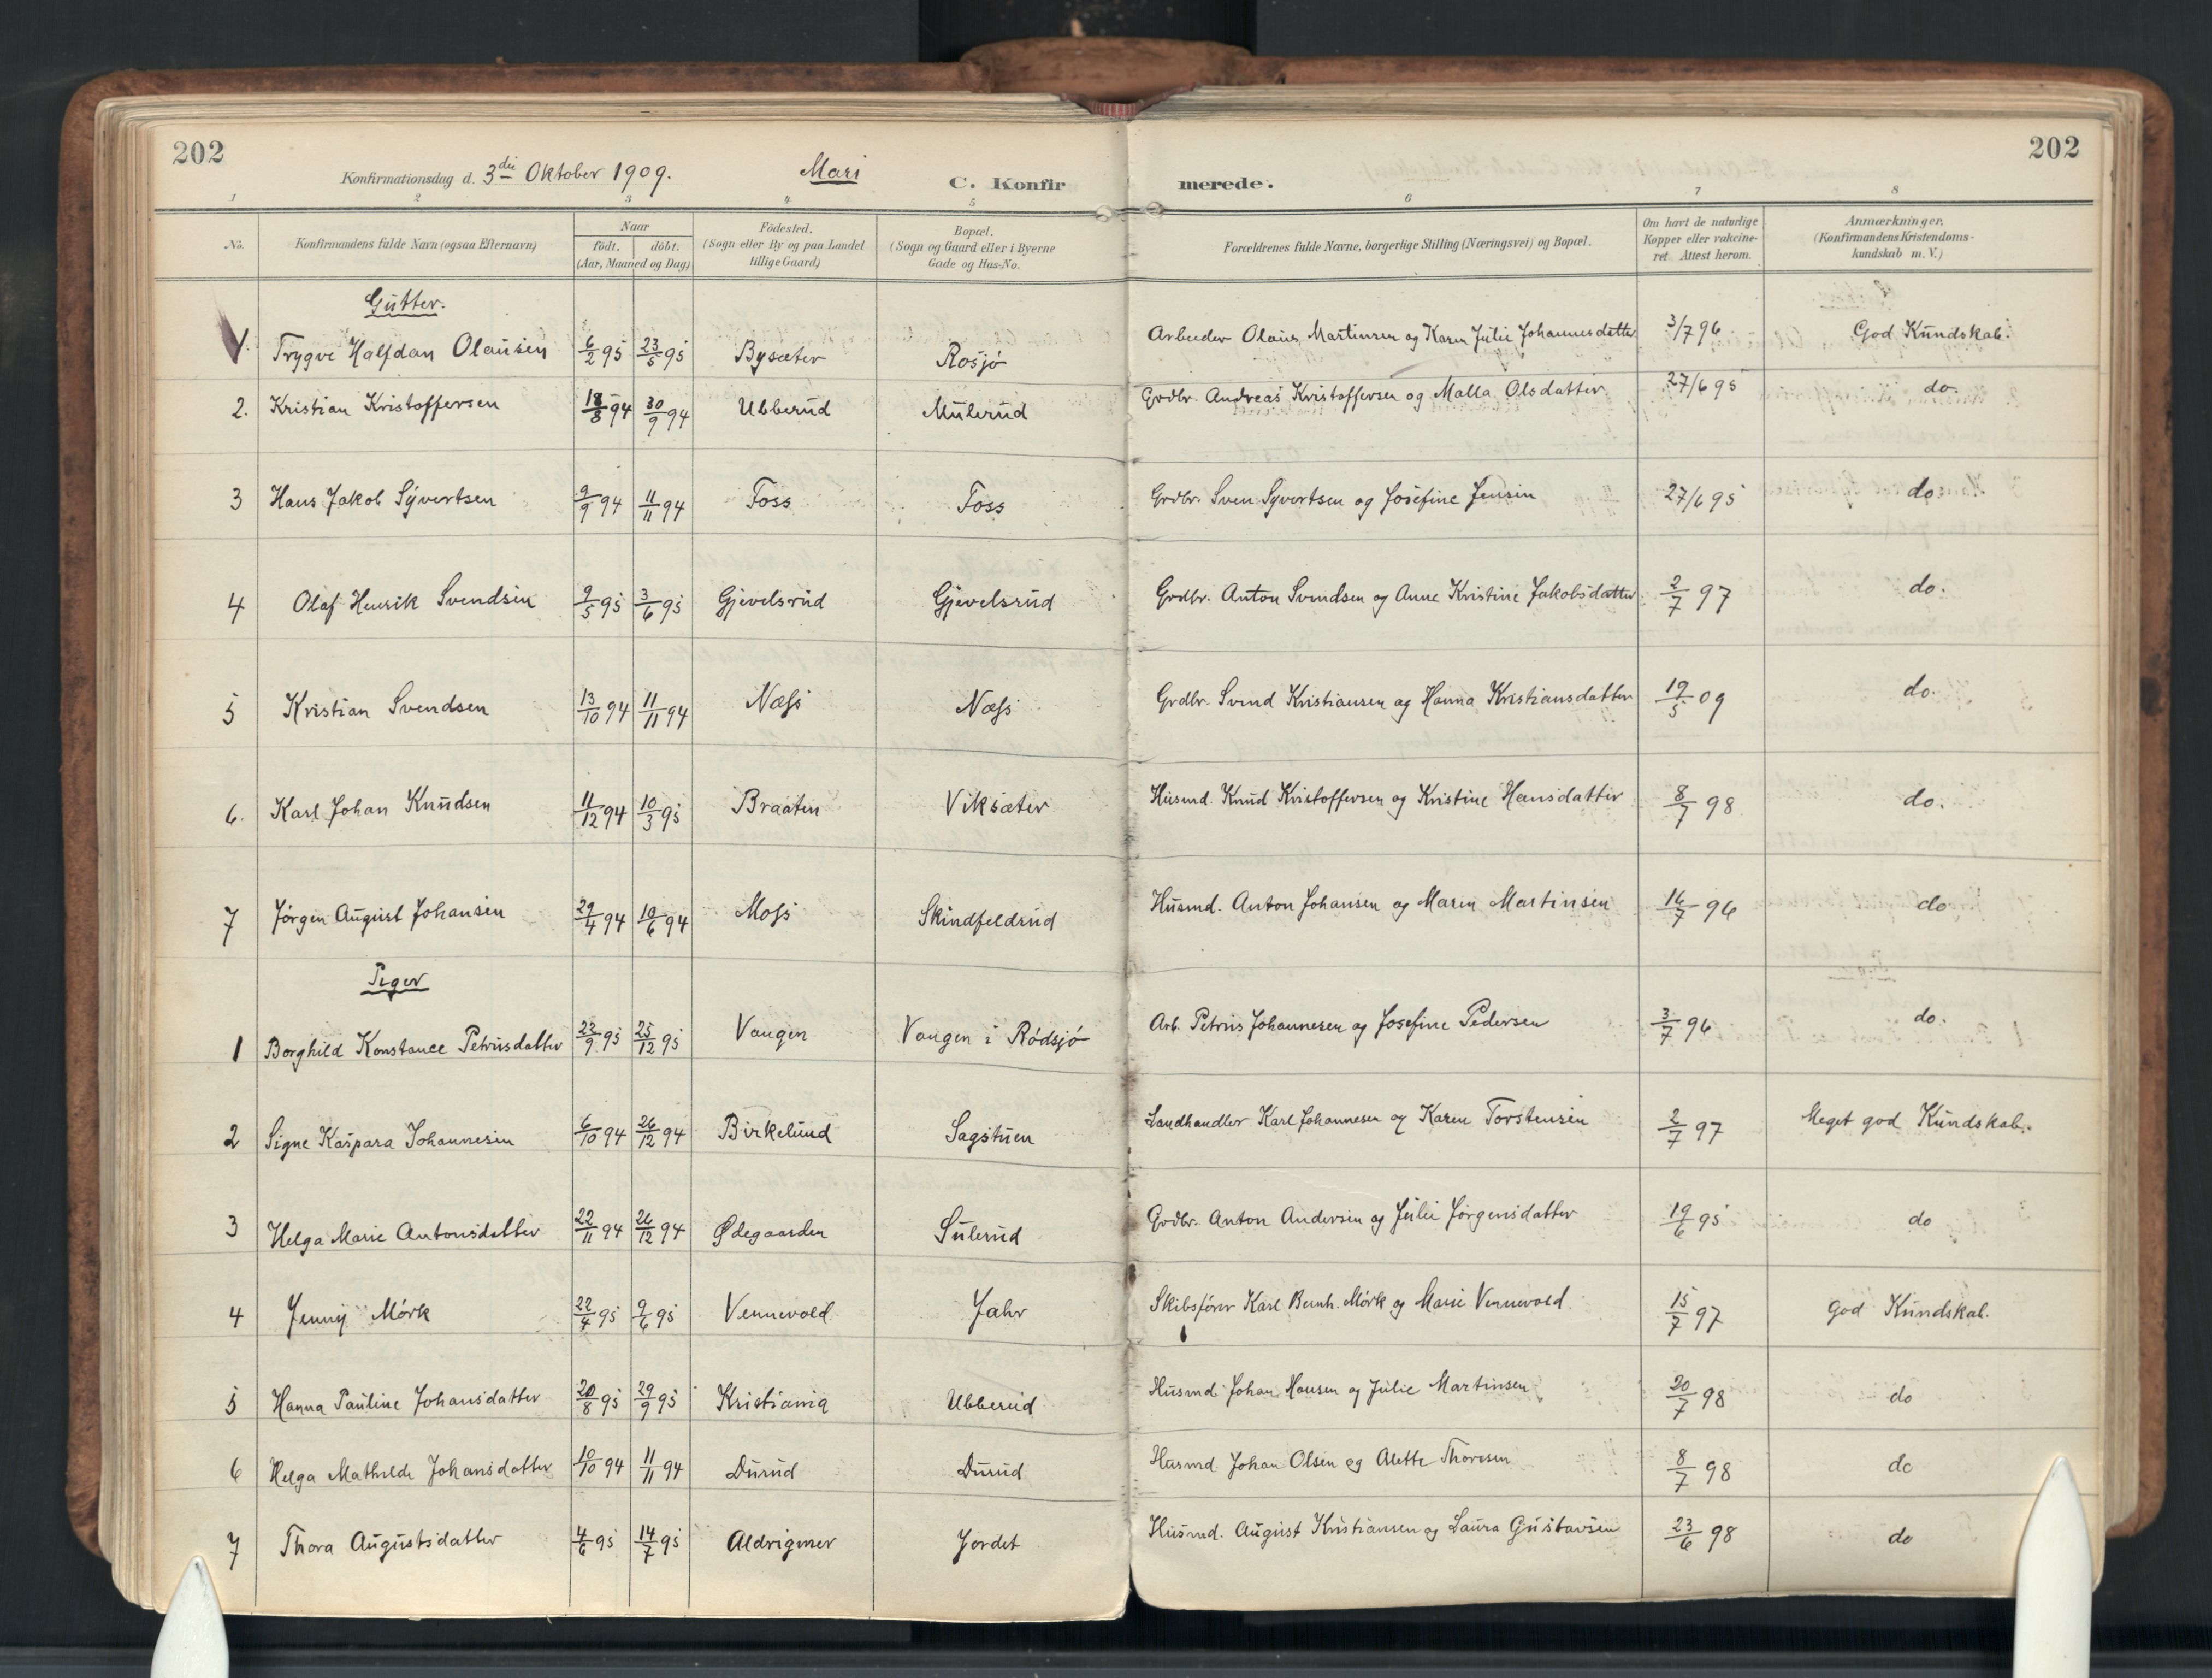 202
Konfirmationsdag d. 3die Oktober 1909. Mari C. Konfirmerede. 202
1 2 3 4 5 6 7 8
No. Konfirmandens fulde Navn (ogsaa Efternavn) Naar født. døbt. (Aar, Maaned og Dag) Fødested. (Sogn eller By og paa Landet tillige Gaard) Bopæl. (Sogn og Gaard eller i Byerne Gade og Hus-No. Forældrenes fulde Navne, borgerlige Stilling (Næringsvei) og Bopæl. Om havt de naturlige Kopper eller vakcineret. Attest herom. Anmærkninger. (Konfirmandens Kristendomskundskab m. V.)
Gutter.
1. Trygve Halfdan Olausen 6/2 95 23/5 95 Bysæter Rosjø Arbeider Olaus Martinsen og Karen Julie Johannesdatter 3/7 96 God Kundskab.
2. Kristian Kristoffersen 18/8 94 30/9 94 Ubberud Mulerud Grdbr. Andreas Kristoffersen og Malla Olsdatter 27/6 95 do.
3 Hans Jakob Syvertsen 9/9 94 11/11 94 Foss Foss Grdbr. Sven Syvertsen og Josefine Jensen 27/6 95 do
4 Olaf Henrik Svendsen 9/5 95 3/6 95 Gjevelsrud Gjevelsrud Grdbr. Anton Svendsen og Anne Kristine Jakobsdatter 2/7 97 do.
5 Kristian Svendsen 13/10 94 11/11 94 Næss Næss Grdbr. Svend Kristiansen og Hanna Kristiansdatter 19/5 09 do.
6. Karl Johan Knudsen 11/12 94 10/3 95 Braaten Viksæter Husmd. Knud Kristoffersen og Kristine Hansdatter 8/7 98 do.
7 Jørgen August Johansen 29/4 94 10/6 94 Moss Skindfeldrud Husmd. Anton Johansen og Maren Martinsen 16/7 96 do
Piger
1 Borghild Konstance Petrusdatter 22/9 95 25/12 95 Vangen Vangen i Rødsjø Arb. Petrus Johannesen og Josefine Pedersen 3/7 96 do.
2 Signe Kaspara Johannesen 6/10 94 26/12 94 Birkelund Sagstuen Landhandler Karl Johannesen og Karen Torstensen 2/7 97 Meget god Kundskab.
3 Helga Marie Antonsdatter 22/11 94 26/12 94 Ødegaarden Sulerud Grdbr. Anton Andersen og Julie Jørgensdatter 19/6 95 do
4 Jenny Mørk 22/4 95 9/6 95 Vennevold Jahr Skibsfører Karl Bernh. Mørk og Marie Vennevold 15/7 97 God Kundskab.
5 Hanna Pauline Johansdatter 20/8 95 29/9 95 Kristiania Ubberud Husmd. Johan Hansen og Julie Martinsen 20/7 98 do
6 Helga Mathilde Johansdatter 10/10 94 11/11 94 Durud Durud Husmd Johan Olsen og Alette Thoresen 8/7 98 do
7 Thora Augustsdatter 4/6 95 14/7 95 Aldrigmer Jordet Husmd. August Kristiansen og Laura Gustavsen 23/6 98 do